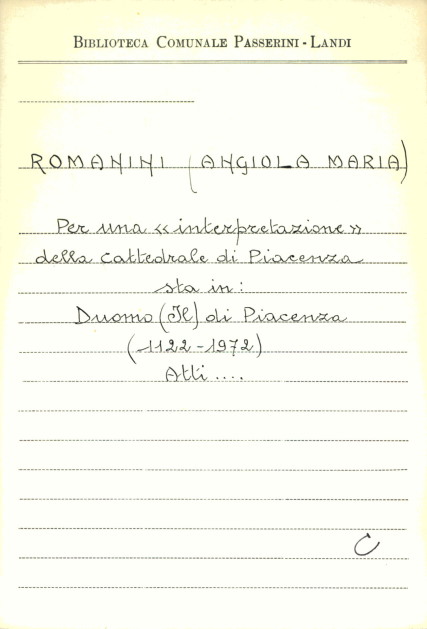 BIBLIOTECA COMUNALE PASSERINI - LANDI
ROMANINI (ANGIOLA MARIA)
Per una « interpretazione »
della Cattedrale di Piacenza
sta in:
Duomo (Il) di Piacenza
(1122-1972)
Atti ....
C